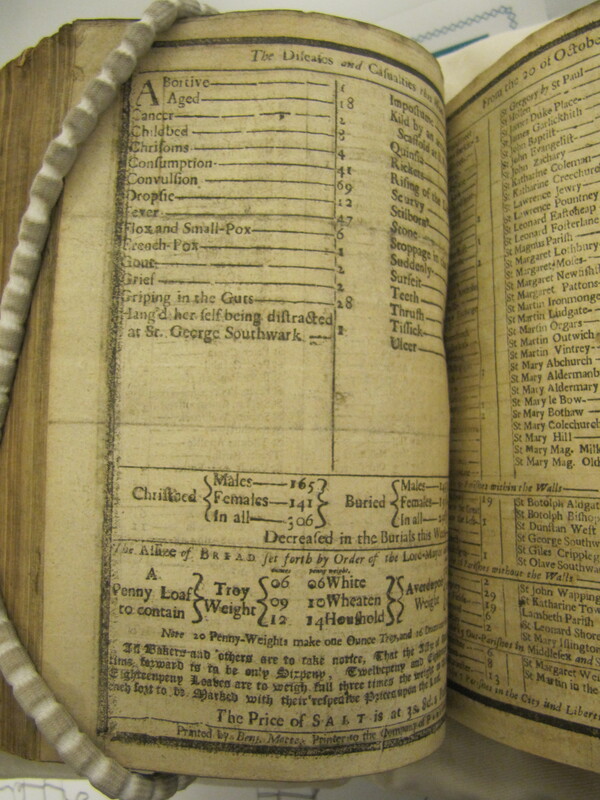 The Diseases and Casualties this
Abortive 1
Aged 18
Cancer 2
Childbed
Chrisoms 4
Consumption 41
Convulsion 69
Dropsie 12
Fever 47
Flox and Small-Pox 6
French-Pox 1
Gout 2
Grief 2
Griping in the Guts 28
Hang'd her self being distracted
at St. George Southwark 1
Impostume
Kild by
Scaffold
Quinsie
Rickets
Rising of the
Scurvy
Stilborn
Stone
Stoppage in
Suddenly
Surfeit
Teeth
Thrush
Tissick
Ulcer
Christned
Males 165
Females 141
In all 306
Buried
Males
Females
In all
Decreased in the Burials this
The Assize of BREAD set forth by Order of the Lord-Mayor
A
Penny Loaf
to contain
Troy
Weight
06 06 White
09 10 Wheaten
12 14 Houshold
Averdupois
Weight
Note 20 Penny-Weights make one Ounce Troy, and 16
All Bakers and others are to take notice, That the
time forward is to be only Sixpeny, Twelvepeny and
Eighteenpeny Loaves are to weigh full three times the weight
each sort to be Marked with their respective Prices upon the Loaf.
The Price of SALT is at
Printed by Benj. Motte, Printer to the Company of
From the 20 of October
St Gregory by St Paul
St James Duke Place
St James Garlickhith
St John Baptist
St John Evangelist
St John Zachary
St Katharine Coleman
St Katharine Creechurch
St Lawrence Jewry
St Lawrence Pountney
St Leonard Eastcheap
St Leonard Fosterlane
St Magnus Parish
St Margaret Lothbury
St Margaret Moses
St Margaret Newfish
St Margaret Pattons
St Martin Ironmonger
St Martin Ludgate
St Martin Orgars
St Martin Outwich
St Martin Vintrey
St Mary Abchurch
St Mary Aldermanb
St Mary Aldermary
St Mary le Bow
St Mary Bothaw
St Mary Colechurch
St Mary Hill
St Mary Mag. Milk
St Mary Mag. Old
Parishes within the Walls
19 St Botolph Aldgat
St Botolph Bishop
1 St Dunstan West
St George Southw
1 St Giles Crippleg
St Olave Southwa
Parishes without the Walls
2 St John Wapping
29 St Katharine Tow
19 Lambeth Parish
St Leonard Shore
St Mary Islington
Out-Parishes in Middlesex and
6 St Margaret We
8 St Martin in the
13
Parishes in the City and Liberti